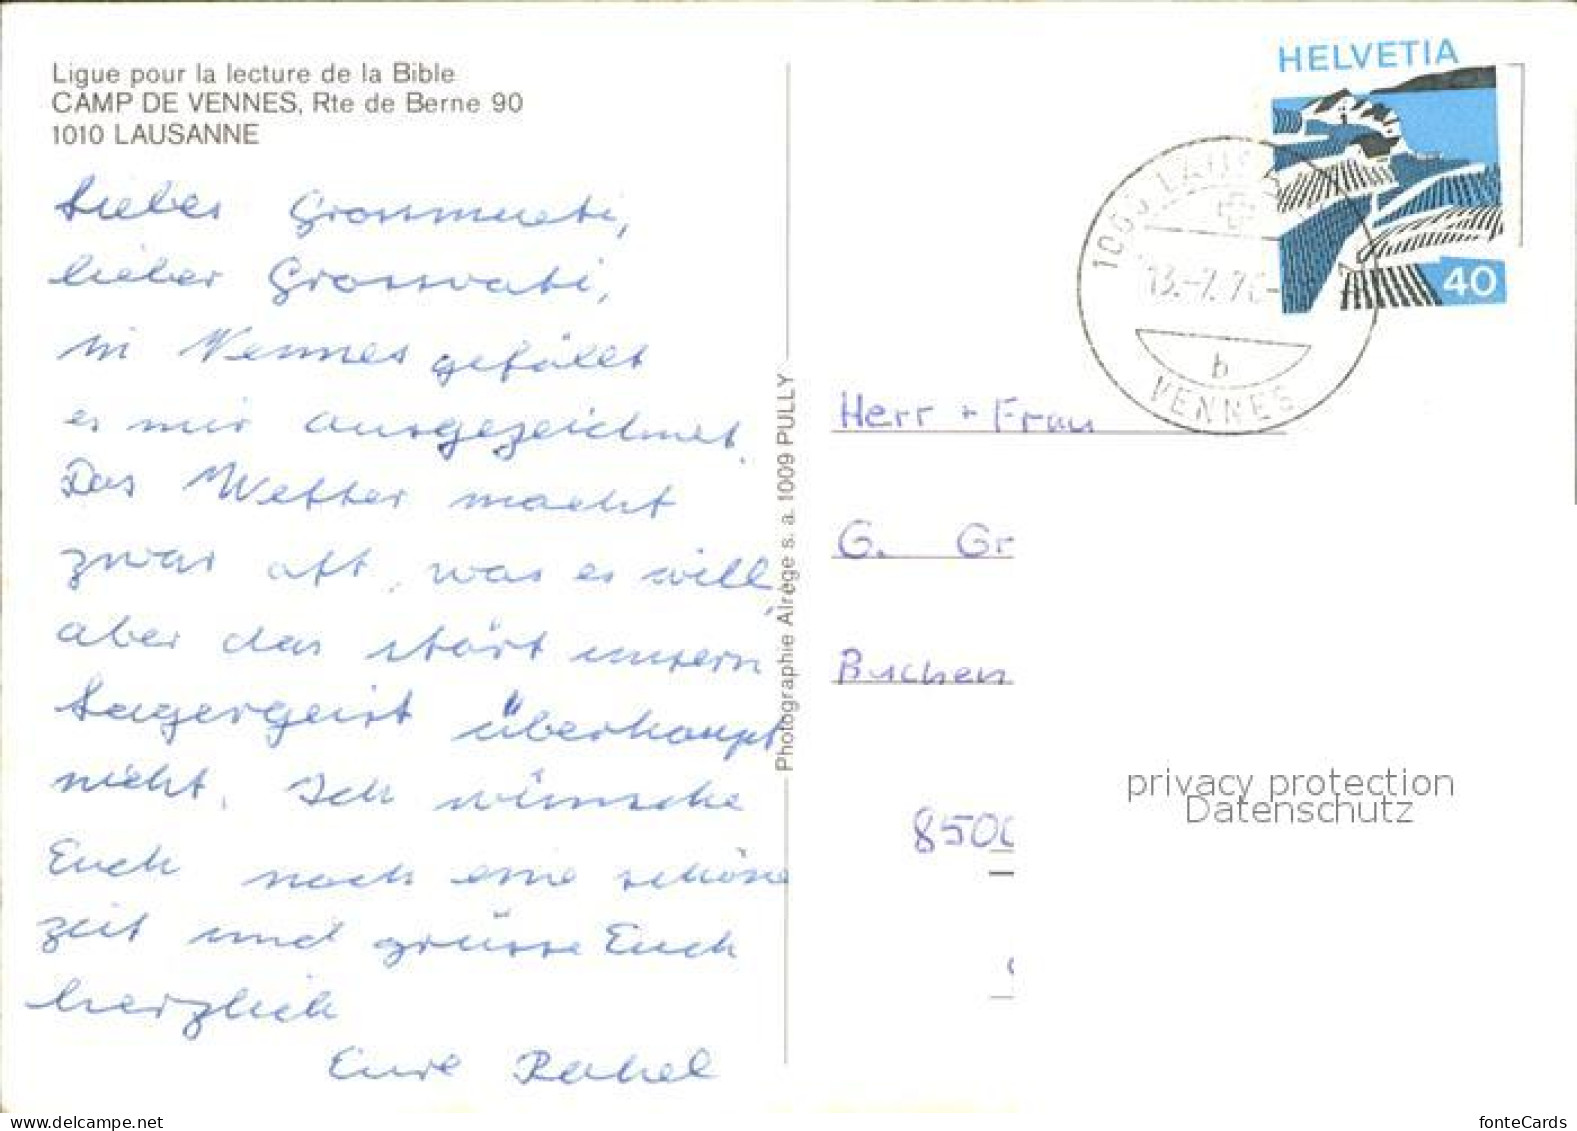 Ligue pour la lecture de la Bible
CAMP DE VENNES, Rte de Berne 90
1010 LAUSANNE
Liebes Grossmueti,
lieber Grossvati,
in Vennes gefällt
es mir ausgezeichnet.
Das Wetter macht
zwar oft, was es will,
aber das stört unsern
Lagergeist überhaupt
nicht. Ich wünsche
Euch noch eine schöne
Zeit und grüsse Euch
herzlich
Eure Rahel
Photographie Alrège s. a. 1009 PULLY
HELVETIA
40
b
VENNES
Herr + Frau
G. Gr
Buchen
8500
privacy protection
Datenschutz
www.delcampe.net
fonteCards